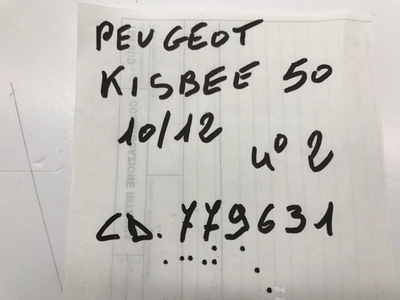 PEUGEOT
KISBEE 50
10/12
n° 2
CD. 779631